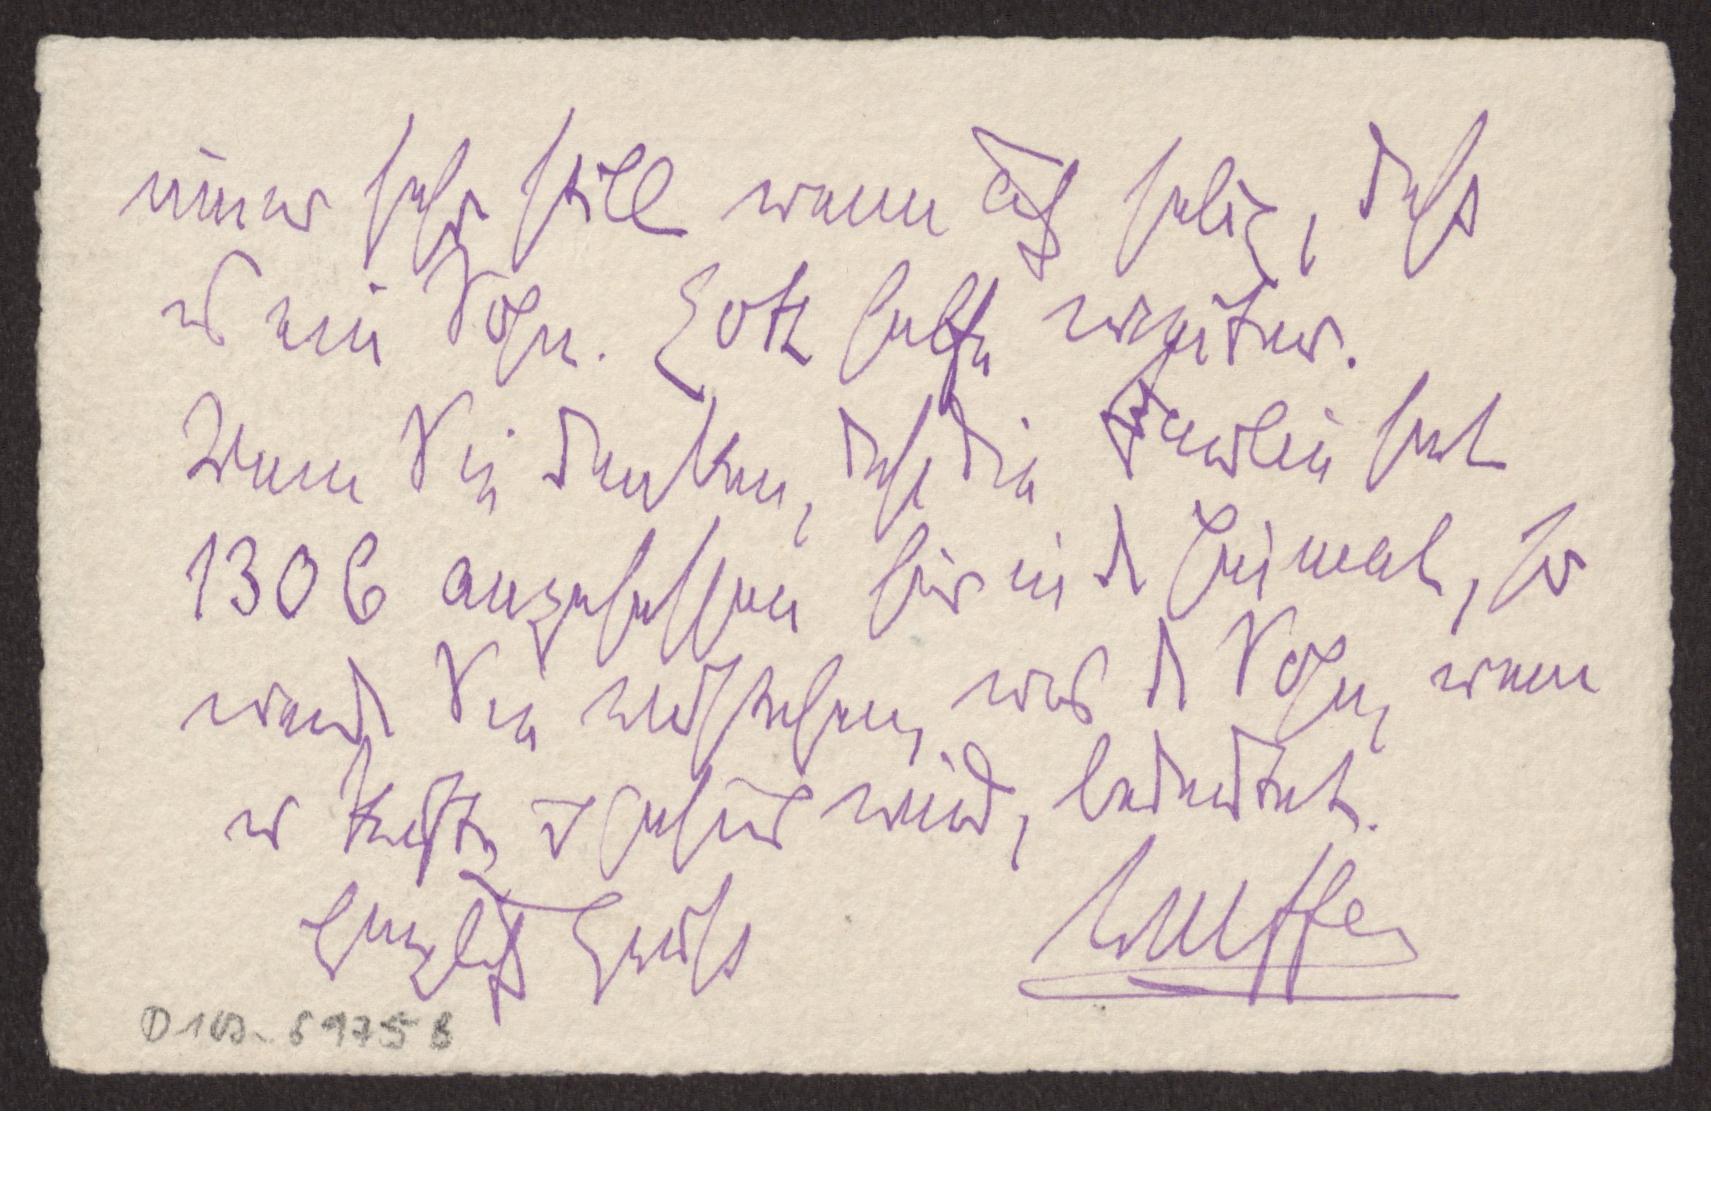 immer sehr still wenn auch selig, dass
es ein Sohn. Gott helfe weiter.
Wenn Sie denken, dass die Familie seit
1306 angesessen hier in d Heimat, so
werd Sie verstehen, was d Sohn, wenn
er kräftig u gesund wird, bedeutet.
Herzlich Gruss
D 163. 6975 B